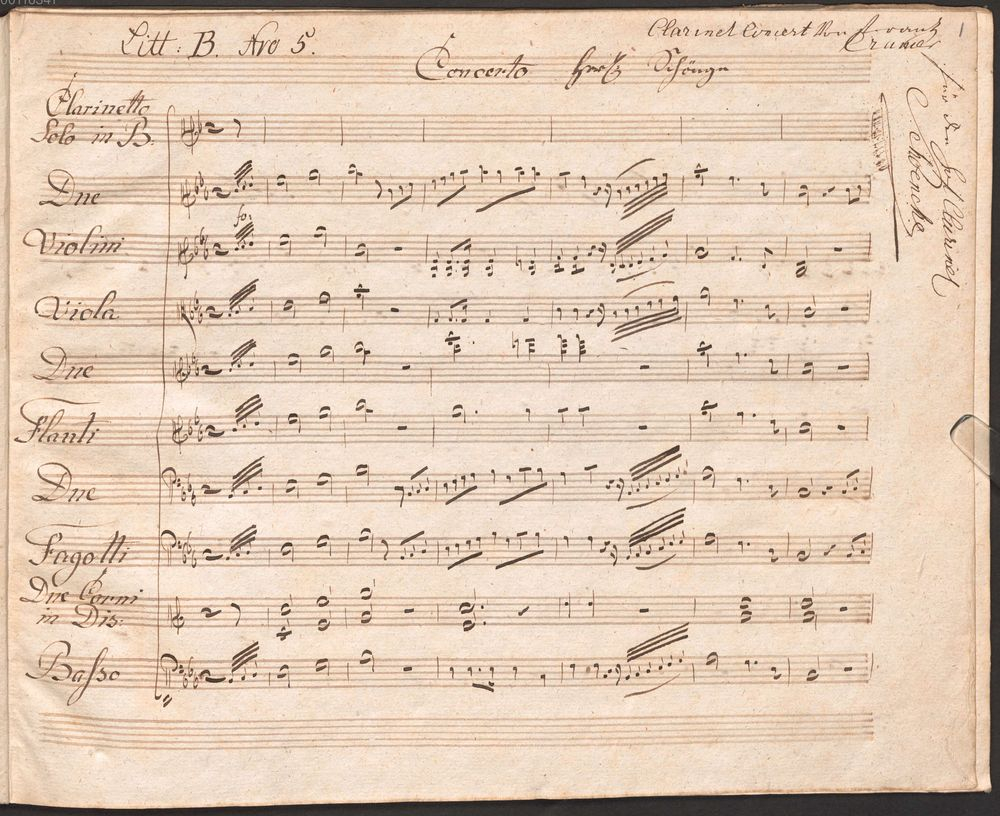 00110341
Litt: B. Nro 5.
Clarinet Concert Von Frantz
1
Concerto Schönge
für den Clarinet
Schoencke
Clarinetto
Solo in B.
Due
fo:
Violini
Viola
Due
Flauti
Due
Fagotti
Due Corni
in Dis:
Basso